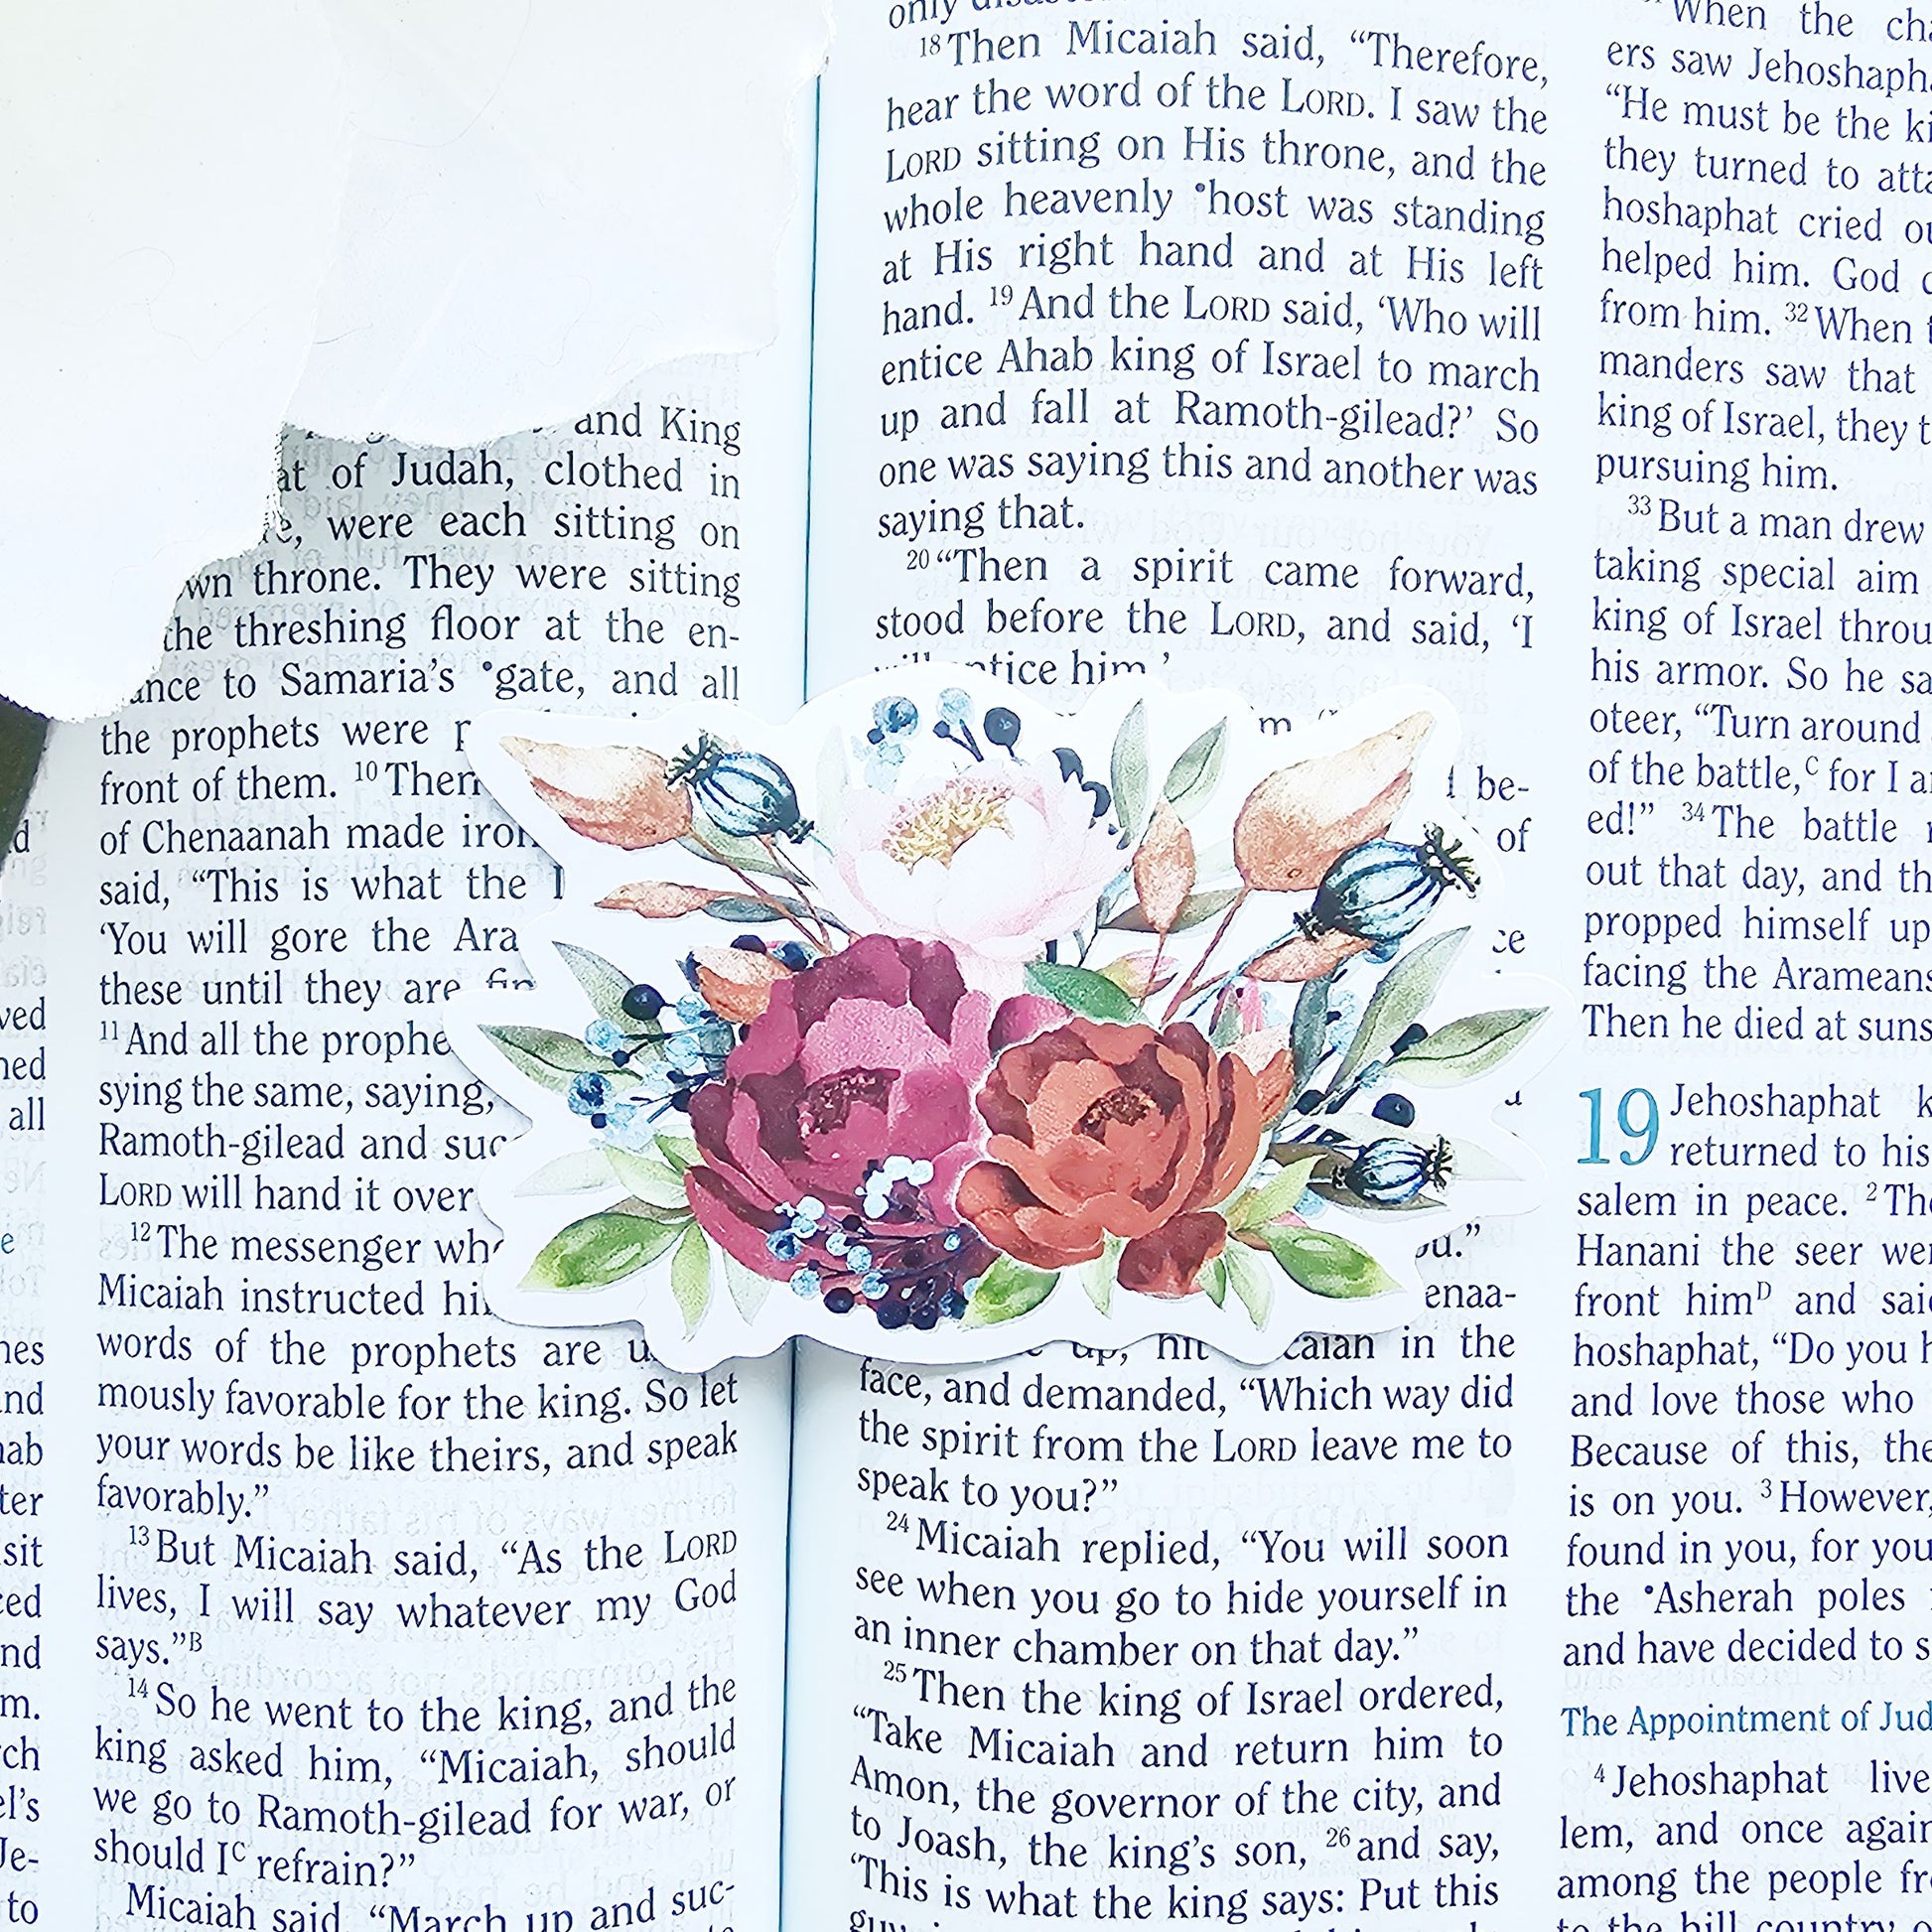 d
ved
ned
all
e
nes
nd
hab
ter
sit
ced
nd
m.
ch
el's
Je-
to
and King
at of Judah, clothed in
were each sitting on
throne. They were sitting
the threshing floor at the en-
to Samaria's •gate, and all
the prophets were
front of them. 10 Then
of Chenaanah made iron
said, “This is what the
‘You will gore the Ara
these until they are
11 And all the prophe
sying the same, saying,
Ramoth-gilead and suc
LORD will hand it over
12 The messenger
Micaiah instructed
words of the prophets are
mously favorable for the king. So let
your words be like theirs, and speak
favorably.”
13 But Micaiah said, “As the LORD
lives, I will say whatever my God
says.”B
14 So he went to the king, and the
king asked him, “Micaiah, should
we go to Ramoth-gilead for war, or
should IC refrain?”
Micaiah said, “March up and suc-
only
18 Then Micaiah said, “Therefore,
hear the word of the LORD. I saw the
LORD sitting on His throne, and the
whole heavenly •host was standing
at His right hand and at His left
hand. 19 And the LORD said, ‘Who will
entice Ahab king of Israel to march
up and fall at Ramoth-gilead?’ So
one was saying this and another was
saying that.
20 “Then a spirit came forward,
stood before the LORD, and said, ‘I
him.’
be-
of
enaa-
up, hit in the
face, and demanded, “Which way did
the spirit from the LORD leave me to
speak to you?”
24 Micaiah replied, “You will soon
see when you go to hide yourself in
an inner chamber on that day.”
25 Then the king of Israel ordered,
“Take Micaiah and return him to
Amon, the governor of the city, and
to Joash, the king's son, 26 and say,
‘This is what the king says: Put this
“When the cha
ers saw Jehoshapha
“He must be the ki
they turned to atta
hoshaphat cried ou
helped him. God
from him. 32 When
manders saw that
king of Israel, they t
pursuing him.
33 But a man drew
taking special aim
king of Israel throu
his armor. So he sa
oteer, “Turn around
of the battle,C for I a
ed!” 34 The battle
out that day, and th
propped himself up
facing the Arameans
Then he died at suns
19 Jehoshaphat k
returned to his
salem in peace. 2 The
Hanani the seer we
front himD and said
hoshaphat, “Do you h
and love those who
Because of this, the
is on you. 3 However,
found in you, for you
the •Asherah poles
and have decided to s
The Appointment of Jud
4 Jehoshaphat live
lem, and once again
among the people fr
to the hill country